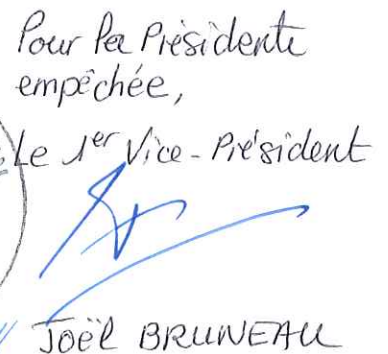 Pour la Présidente
empêchée,
Le 1er Vice-Président
Joël BRUNEAU